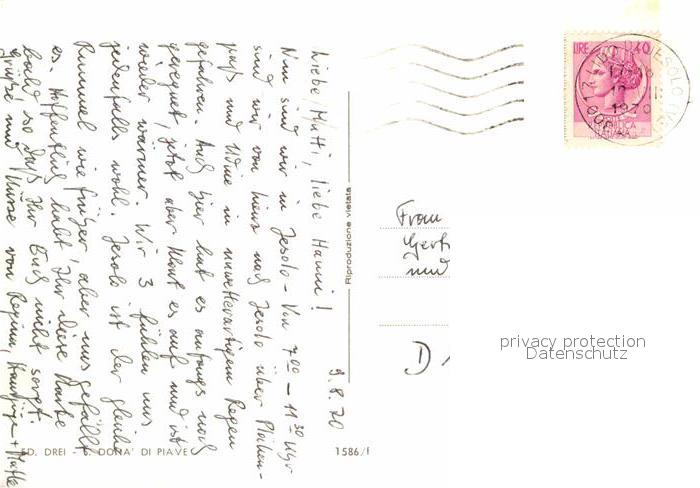 9.8.70
Liebe Mutti, liebe Hanni!
Nun sind wir in Jesolo. Von 7⁰⁰ – 11³⁰ Uhr
sind wir von Lienz nach Jesolo über Plöcken-
paß und Udine in unwetterartigem Regen
gefahren. Auch hier hat es anfangs noch
geregnet, jetzt aber klart es auf und ist
wieder wärmer. Wir 3 fühlen uns
jedenfalls wohl. Jesolo ist der gleiche
Rummel wie früher, aber uns gefällt
es. Hoffentlich habt Ihr diese Karte
bald so daß Ihr Euch nicht sorgt.
Grüße und Küsse von Regina, +
ED. DREI - S. DONA' DI PIAVE
1586/
Riproduzione vietata
LIRE 40
LIDO JESOLO
1970
Frau
und
D
privacy protection
Datenschutz